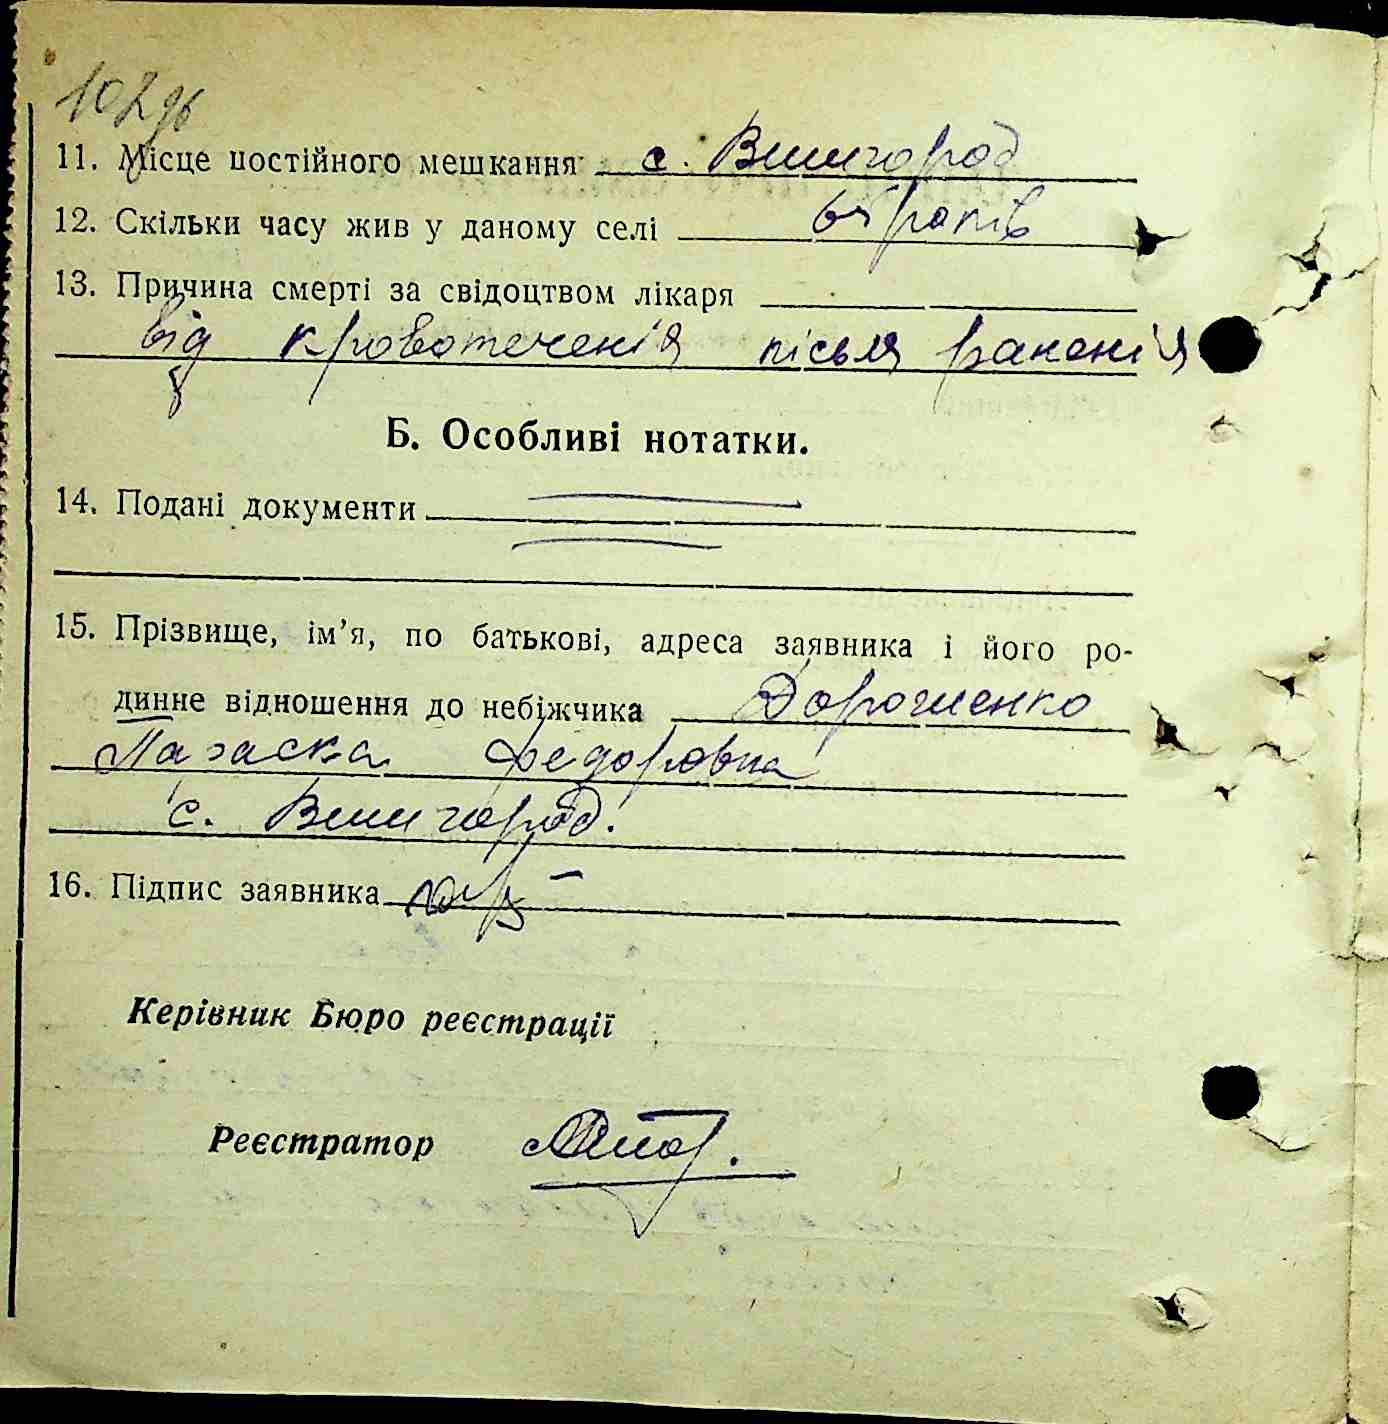 102зв
11. Місце постійного мешкання с. Вишгород
12. Скільки часу жив у даному селі 64 років
13. Причина смерті за свідоцтвом лікаря
від кровотеченія після раненія
Б. Особливі нотатки.
14. Подані документи
15. Прізвище, ім’я, по батькові, адреса заявника і його ро-
динне відношення до небіжчика Дорошенко
Параска Федоровна
с. Вишгород.
16. Підпис заявника
Керівник Бюро реєстрації
Реєстратор